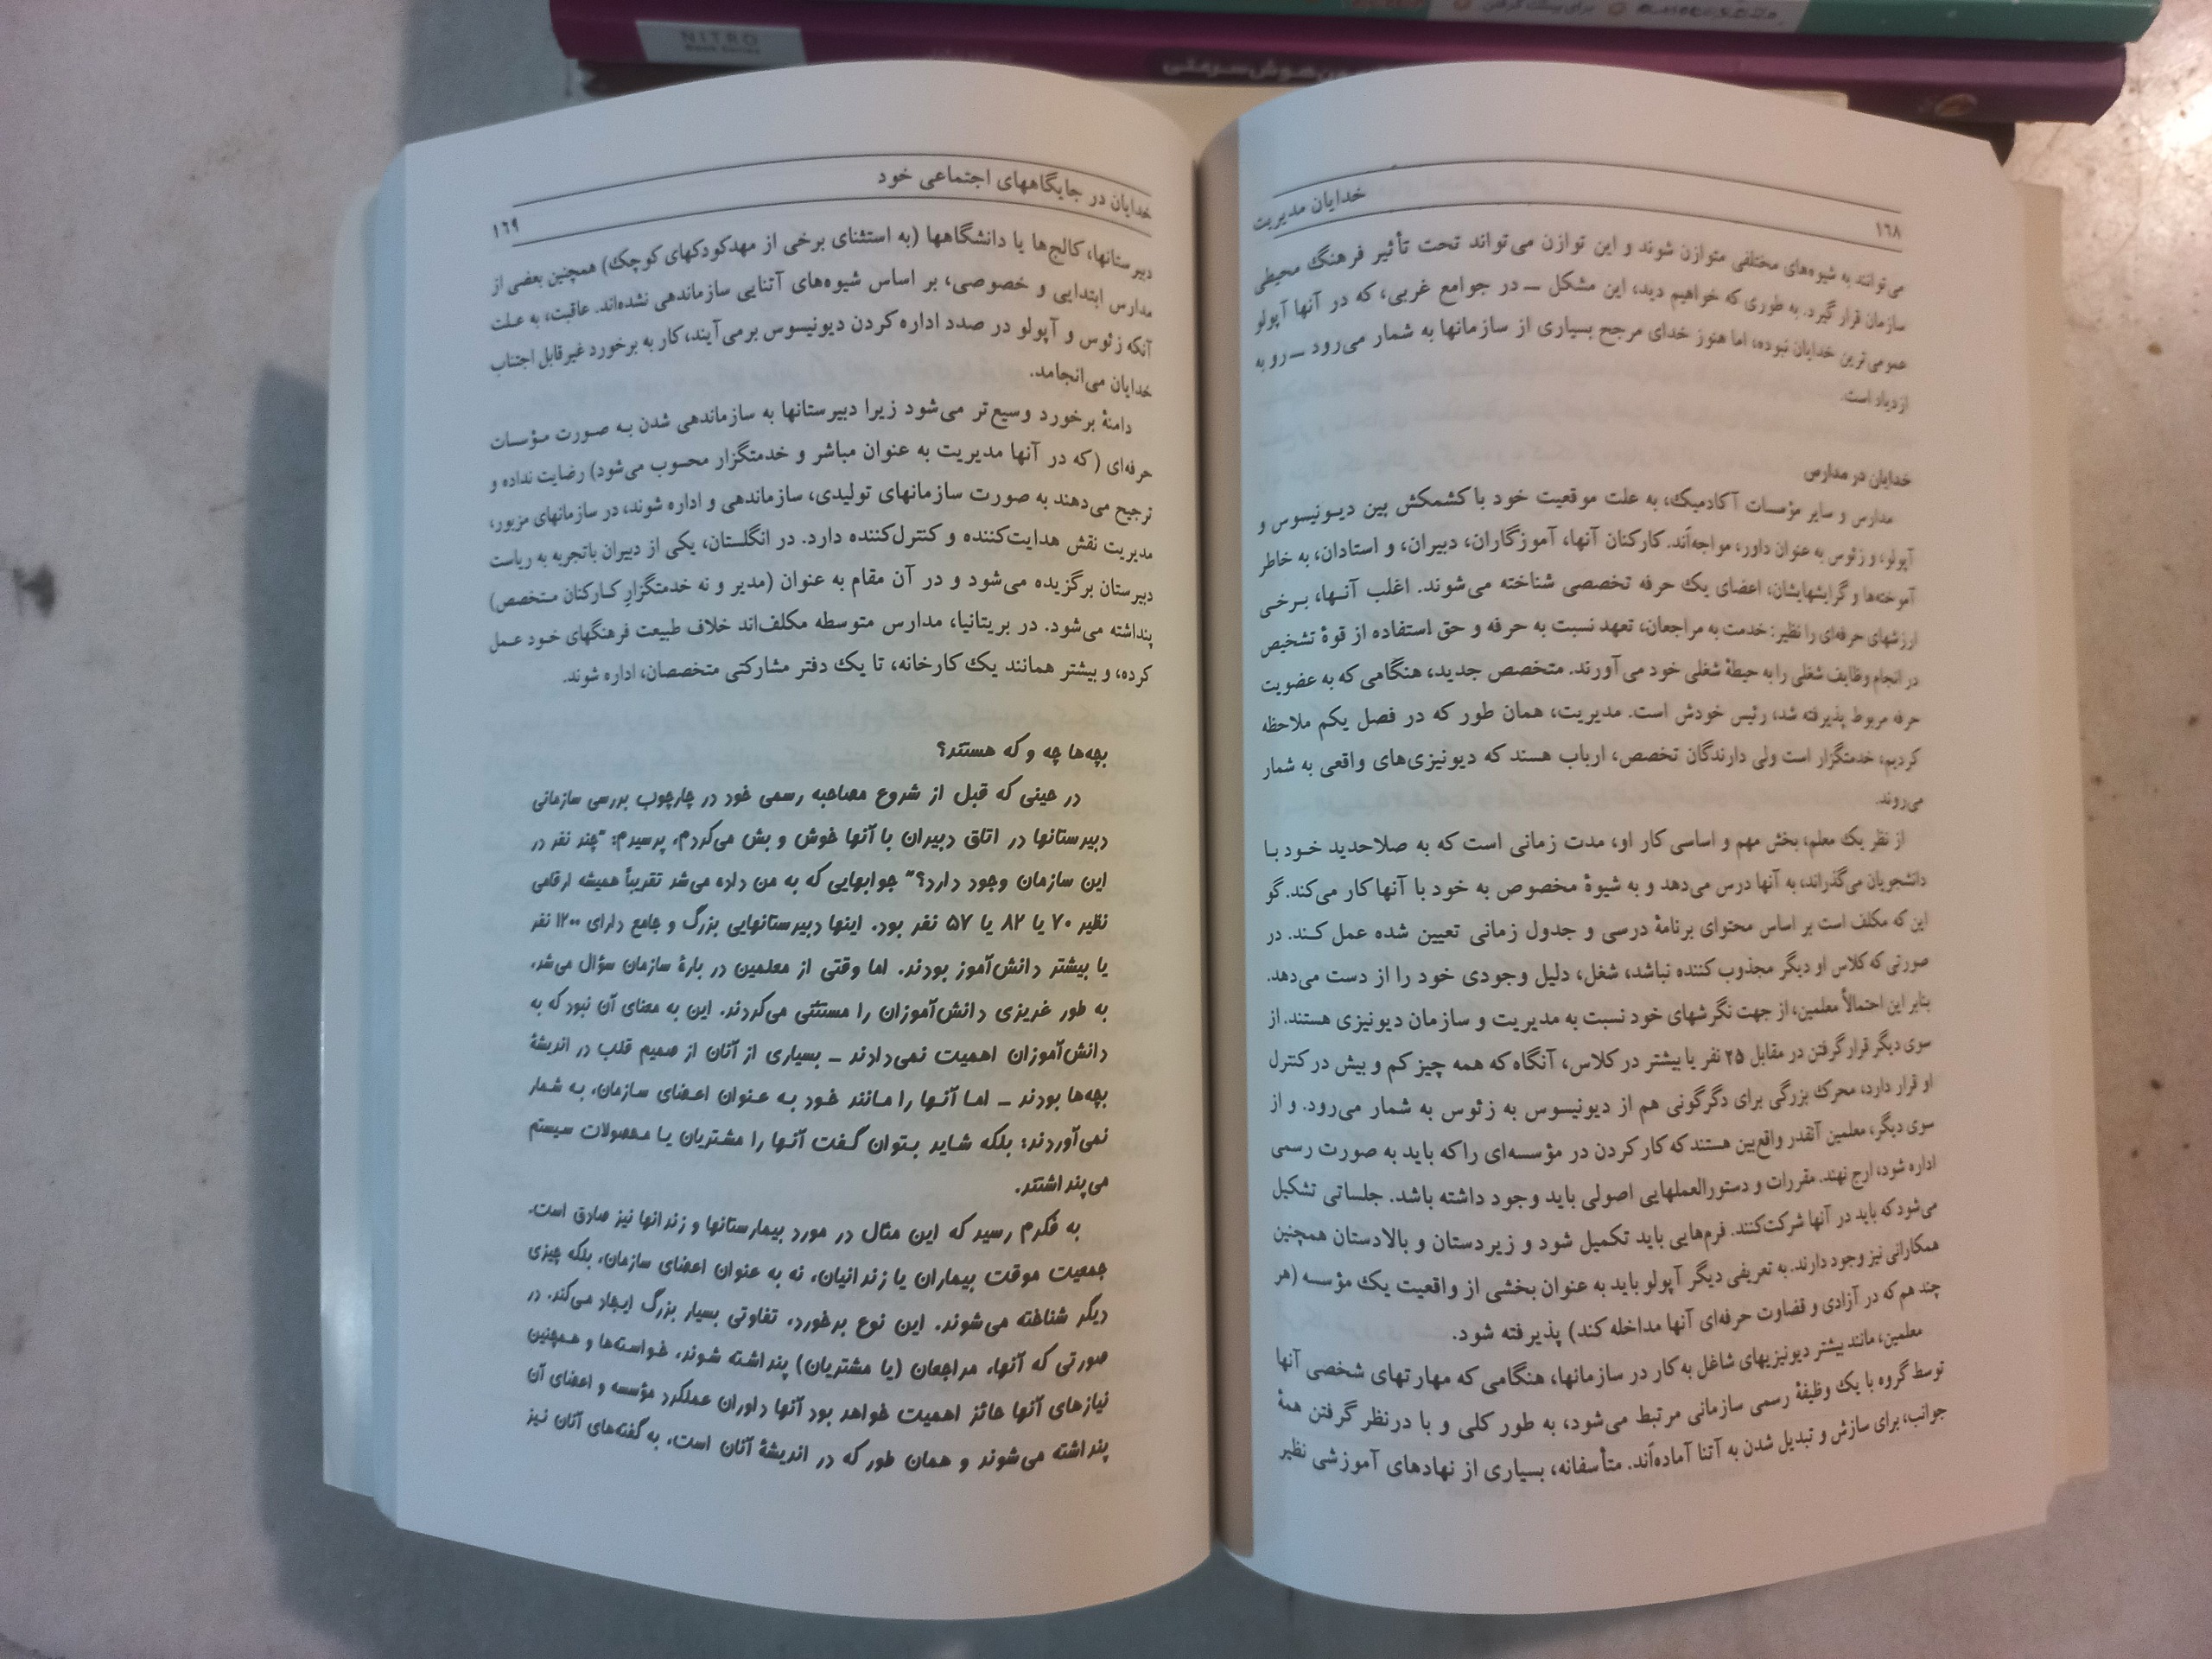 NITRO
هوش‌سرمتی
برای بینک گرفتن
خدایان مدیریت
۱۶۸
می‌توانند به شیوه‌های مختلفی متوازن شوند و این توازن می‌تواند تحت تأثیر فرهنگ محیطی
سازمان قرار گیرد. به طوری که خواهیم دید، این مشکل — در جوامع غربی، که در آنها آپولو
عمومی‌ترین خدایان نبوده، اما هنوز خدای مرجح بسیاری از سازمانها به شمار می‌رود — رو به
ازدیاد است.
خدایان در مدارس
مدارس و سایر مؤسسات آکادمیک، به علت موقعیت خود با کشمکش بین دیونیسوس و
آپولو، و زئوس به عنوان داور، مواجه‌اند. کارکنان آنها، آموزگاران، دبیران، و استادان، به خاطر
آموخته‌ها و گرایشهایشان، اعضای یک حرفه تخصصی شناخته می‌شوند. اغلب آنها، برخی
ارزشهای حرفه‌ای را نظیر: خدمت به مراجعان، تعهد نسبت به حرفه و حق استفاده از قوهٔ تشخیص
در انجام وظایف شغلی را به حیطهٔ شغلی خود می‌آورند. متخصص جدید، هنگامی که به عضویت
حرفه مربوط پذیرفته شد، رئیس خودش است. مدیریت، همان طور که در فصل یکم ملاحظه
کردیم، خدمتگزار است ولی دارندگان تخصص، ارباب هسند که دیونیزی‌های واقعی به شمار
می‌روند.
از نظر یک معلم، بخش مهم و اساسی کار او، مدت زمانی است که به صلاحدید خود با
دانشجویان می‌گذراند، به آنها درس می‌دهد و به شیوهٔ مخصوص به خود با آنها کار می‌کند. گو
این که مکلف است بر اساس محتوای برنامهٔ درسی و جدول زمانی تعیین شده عمل کند. در
صورتی که کلاس او دیگر مجذوب کننده نباشد، شغل، دلیل وجودی خود را از دست می‌دهد.
بنابر این احتمالاً معلمین، از جهت نگرشهای خود نسبت به مدیریت و سازمان دیونیزی هستند. از
سوی دیگر قرار گرفتن در مقابل ۲۵ نفر یا بیشتر در کلاس، آنگاه که همه چیز کم و بیش در کنترل
او قرار دارد، محرک بزرگی برای دگرگونی هم از دیونیسوس به زئوس به شمار می‌رود. و از
سوی دیگر، معلمین آنقدر واقع‌بین هستند که کار کردن در مؤسسه‌ای را که باید به صورت رسمی
اداره شود، ارج نهند. مقررات و دستورالعملهایی اصولی باید وجود داشته باشد. جلساتی تشکیل
می‌شود که باید در آنها شرکت‌کنند. فرم‌هایی باید تکمیل شود و زیردستان و بالادستان همچنین
همکارانی نیز وجود دارند. به تعریفی دیگر آپولو باید به عنوان بخشی از واقعیت یک مؤسسه (هر
چند هم که در آزادی و قضاوت حرفه‌ای آنها مداخله کند) پذیرفته شود.
معلمین، مانند بیشتر دیونیزیهای شاغل به کار در سازمانها، هنگامی که مهارتهای شخصی آنها
توسط گروه با یک وظیفهٔ رسمی سازمانی مرتبط می‌شود، به طور کلی و با درنظر گرفتن همهٔ
جوانب، برای سازش و تبدیل شدن به آتنا آماده‌اند. متأسفانه، بسیاری از نهادهای آموزشی نظیر
خدایان در جایگاههای اجتماعی خود
۱۶۹
دبیرستانها، کالج‌ها یا دانشگاهها (به استثنای برخی از مهدکودکهای کوچک) همچنین بعضی از
مدارس ابتدایی و خصوصی، بر اساس شیوه‌های آتنایی سازماندهی نشده‌اند. عاقبت، به علت
آنکه زئوس و آپولو در صدد اداره کردن دیونیسوس برمی‌آیند، کار به برخورد غیرقابل اجتناب
خدایان می‌انجامد.
دامنهٔ برخورد وسیع‌تر می‌شود زیرا دبیرستانها به سازماندهی شدن به صورت مؤسسات
حرفه‌ای (که در آنها مدیریت به عنوان مباشر و خدمتگزار محسوب می‌شود) رضایت نداده و
ترجیح می‌دهند به صورت سازمانهای تولیدی، سازماندهی و اداره شوند، در سازمانهای مزبور،
مدیریت نقش هدایت‌کننده و کنترل‌کننده دارد. در انگلستان، یکی از دبیران باتجربه به ریاست
دبیرستان برگزیده می‌شود و در آن مقام به عنوان (مدیر و نه خدمتگزارِ کارکنان متخصص)
پنداشته می‌شود. در بریتانیا، مدارس متوسطه مکلف‌اند خلاف طبیعت فرهنگهای خود عمل
کرده، و بیشتر همانند یک کارخانه، تا یک دفتر مشارکتی متخصصان، اداره شوند.
بچه‌ها چه و که هستند؟
در حینی که قبل از شروع مصاحبه رسمی خود در چارچوب بررسی سازمانی
دبیرستانها در اتاق دبیران با آنها خوش و بش می‌کردم، پرسیدم: "چند نفر در
این سازمان وجود دارد؟" جوابهایی که به من داده می‌شد تقریباً همیشه ارقامی
نظیر ۷۰ یا ۸۲ یا ۵۷ نفر بود. اینها دبیرستانهایی بزرگ و جامع دارای ۱۲۰۰ نفر
یا بیشتر دانش‌آموز بودند. اما وقتی از معلمین در بارهٔ سازمان سؤال می‌شد،
به طور غریزی دانش‌آموزان را مستثنی می‌کردند. این به معنای آن نبود که به
دانش‌آموزان اهمیت نمی‌دادند – بسیاری از آنان از صمیم قلب در اندیشهٔ
بچه‌ها بودند – اما آنها را مانند خود به عنوان اعضای سازمان، به شمار
نمی‌آوردند؛ بلکه شاید بتوان گفت آنها را مشتریان یا محصولات سیستم
می‌پنداشتند.
به فکرم رسید که این مثال در مورد بیمارستانها و زندانها نیز صادق است.
جمعیت موقت بیماران یا زندانیان، نه به عنوان اعضای سازمان، بلکه چیزی
دیگر شناخته می‌شوند. این نوع برخورد، تفاوتی بسیار بزرگ ایجاد می‌کند. در
صورتی که آنها، مراجعان (یا مشتریان) پنداشته شوند، خواسته‌ها و همچنین
نیازهای آنها حائز اهمیت خواهد بود آنها داوران عملکرد مؤسسه و اعضای آن
پنداشته می‌شوند و همان طور که در اندیشهٔ آنان است، به گفته‌های آنان نیز